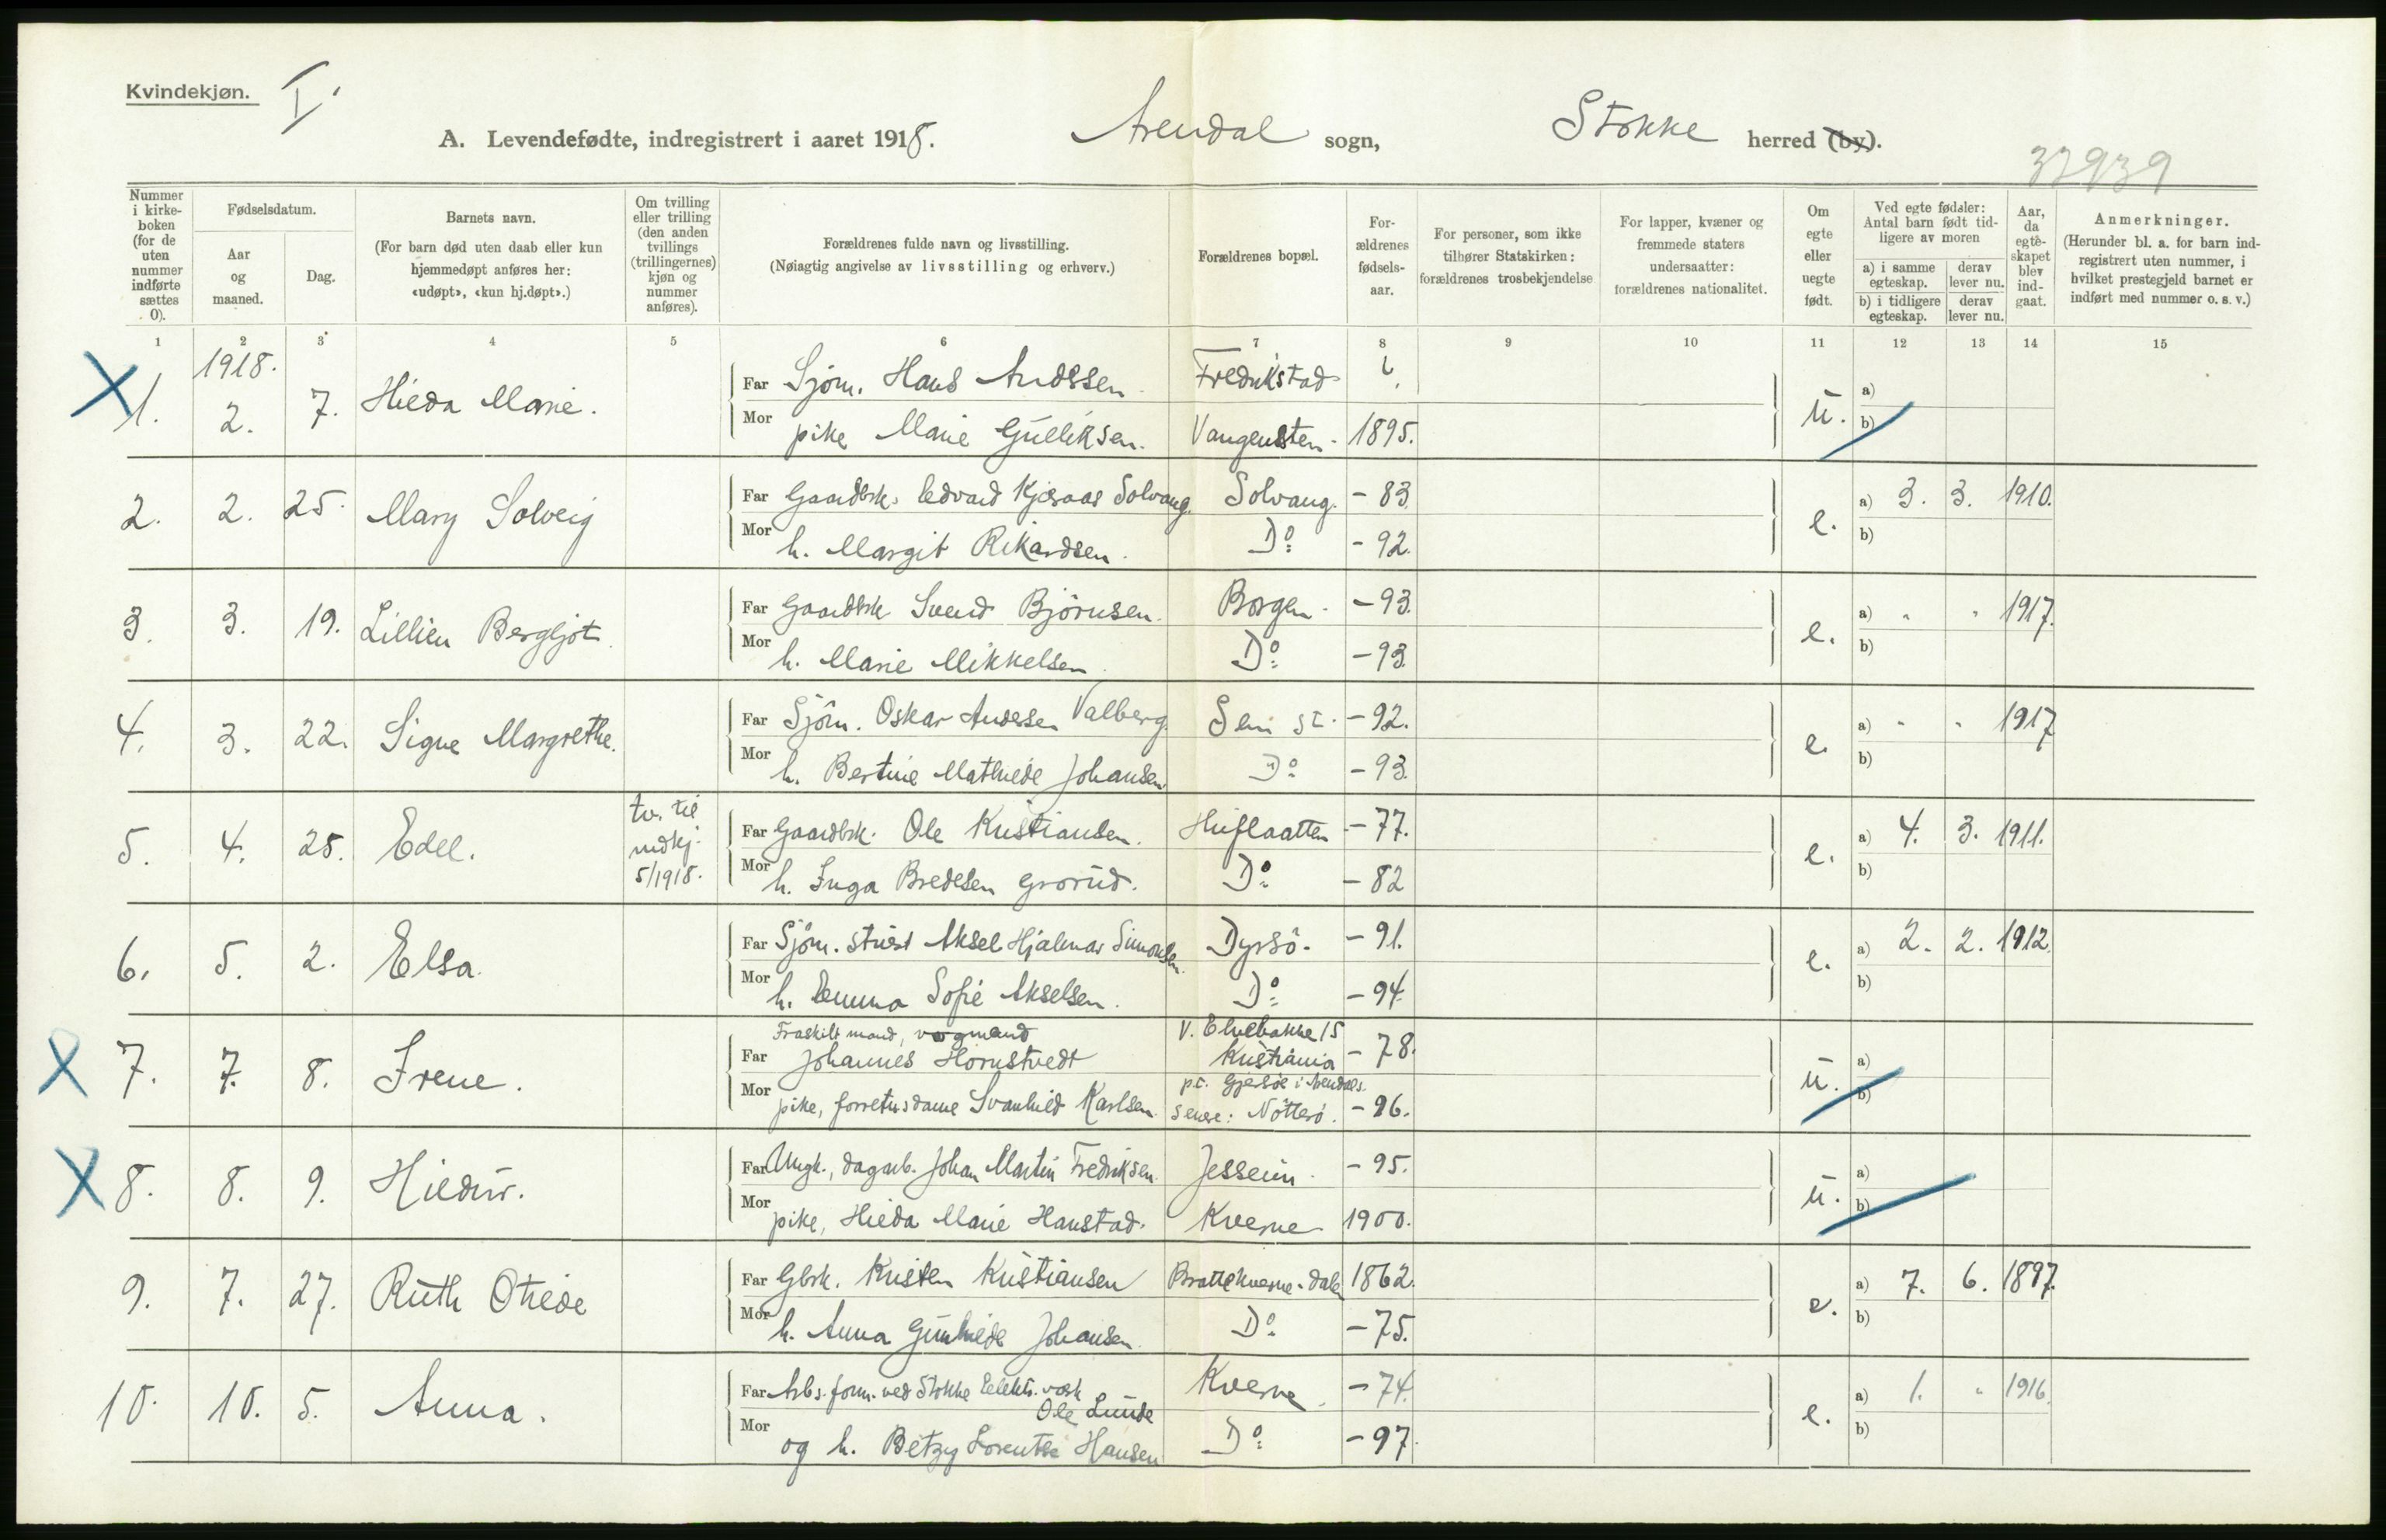 Kvindekjøn. I.
A. Levendefødte, indregistrert i aaret 1918. Arendal sogn, Stokke herred (by).
37939
Nummer i kirkeboken (for de uten nummer indførte sættes 0).
Fødselsdatum.
Aar og maaned.
Dag.
Barnets navn.
(For barn død uten daab eller kun hjemmedøpt anføres her: «udøpt», «kun hj.døpt».)
Om tvilling eller trilling (den anden tvillings (trillingernes) kjøn og nummer anføres).
Forældrenes fulde navn og livsstilling.
(Nøiagtig angivelse av livsstilling og erhverv.)
Forældrenes bopæl.
Forældrenes fødselsaar.
For personer, som ikke tilhører Statskirken: forældrenes trosbekjendelse
For lapper, kvæner og fremmede staters undersaatter: forældrenes nationalitet.
Om egte eller uegte født.
Ved egte fødsler: Antal barn født tidligere av moren
a) i samme egteskap. derav lever nu.
b) i tidligere egteskap. derav lever nu.
Aar, da egteskapet blev indgaat.
Anmerkninger.
(Herunder bl. a. for barn indregistrert uten nummer, i hvilket prestegjeld barnet er indført med nummer o. s. v.)
1 2 3 4 5 6 7 8 9 10 11 12 13 14 15
1918.
1. 2. 7. Hilda Marie. Far Sjøm. Hans Andssen. Fredrikstad u. a)
Mor pike Marie Gulliksen. Vangensten. 1895. b)
2. 2. 25. Mary Solveig Far Gaardbrk. Edvard Kjæraas Solvang. Solvang. - 83. e. a) 3. 3. 1910.
Mor h. Margit Rikardsen. Do - 92. b)
3. 3. 19. Lillien Bergljot. Far Gaardbrk Svend Bjørnsen. Borgen. - 93. e. a) " " 1917.
Mor h. Marie Mikkelsen. Do - 93. b)
4. 3. 22. Signe Margrethe. Far Sjöm. Oskar Andssen Valberg. Sem st. - 92. e. a) " " 1917
Mor h. Bertine Mathilde Johansen Do - 93. b)
5. 4. 25. Edel. tv. til mdkj. 5/1918. Far Gaardbrk. Ole Kristiansen. Huflaatten - 77. e. a) 4. 3. 1911.
Mor h. Inga Bredesen Grorud. Do - 82 b)
6. 5. 2. Elsa. Far Sjøm. Aksel Hjalmar Simonsen. Dyrsö. - 91. e. a) 2. 2. 1912.
Mor h. Emma Sofie Akselsen. Do - 94. b)
Fraskilt mand, vognmand V. Elvebakke 15
7. 7. 8. Irene. Far Johannes Hornstvedt Kristiania - 78. u. a)
p.t. Gjersøe i Arendals.
Mor pike, forretnsdame Svanhild Karlsen. senere: Nötterö. - 96. b)
8. 8. 9. Hildur. Far Ungk., dagarb. Johan Martin Fredriksen. Jesseim - 95. u. a)
Mor pike, Hilda Marie Hanstad. Kverne 1900. b)
9. 7. 27. Ruth Otilde Far Gbrk. Kristen Kristiansen Brattekverne-dalen 1862. e. a) 7. 6. 1897.
Mor h. Anna Gunhilde Johansen. Do - 75. b)
10. 10. 5. Anna. Far Arbs.form. ved Stokke Elektr. værk Ole Lunde Kverne - 74. e. a) 1. " 1916.
Mor og h. Betzy Lorentse Hansen Do - 97. b)